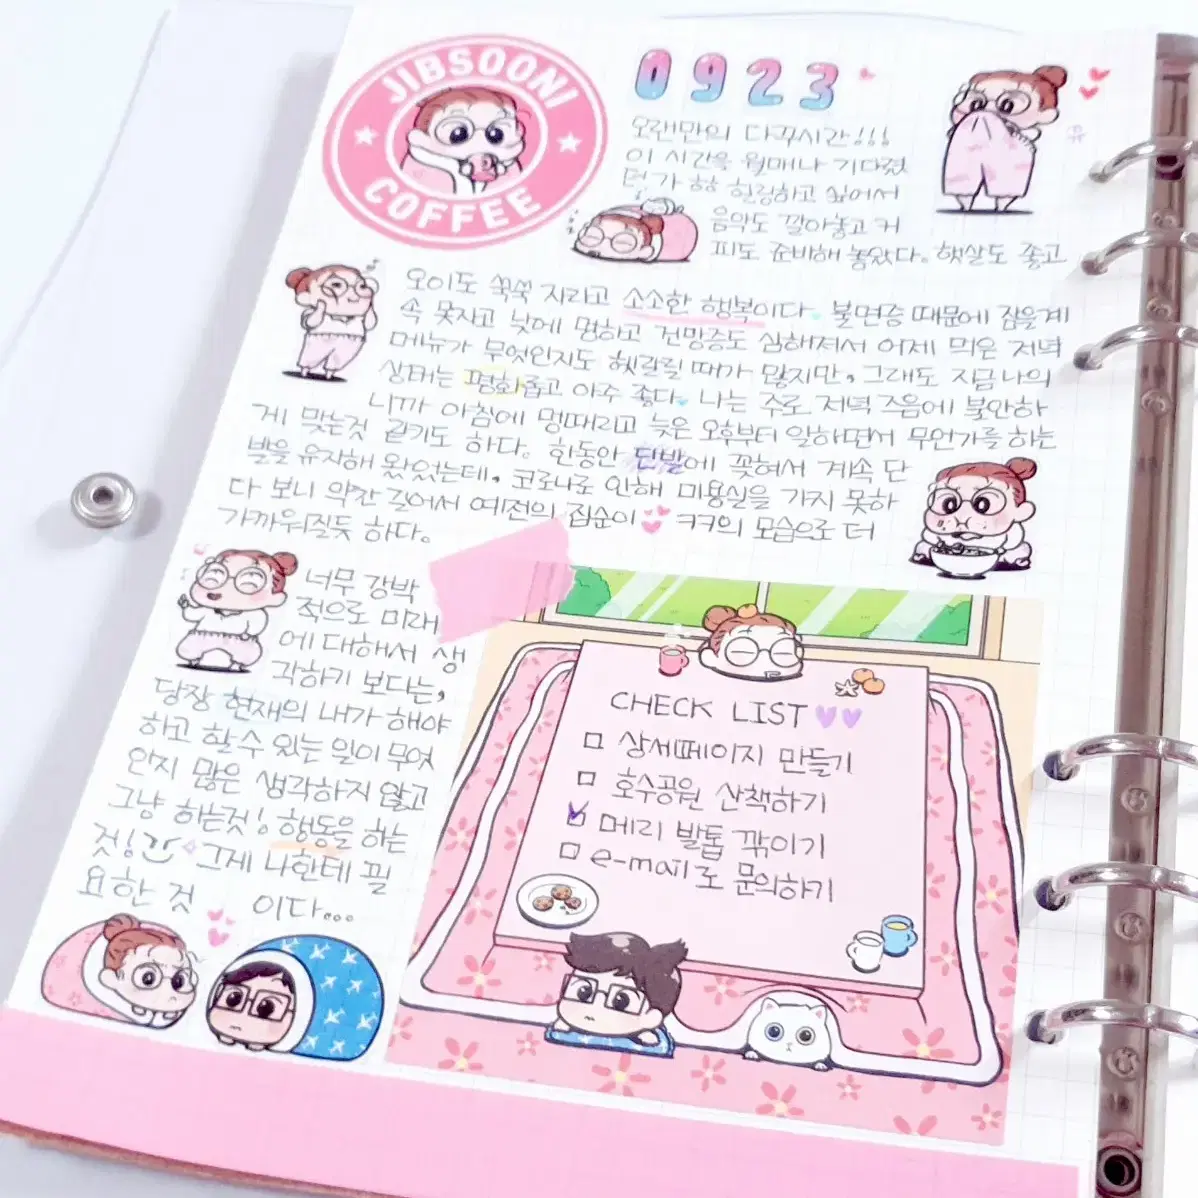 JIBSOONI
COFFEE
0923
오랜만의 다꾸시간!!!
이 시간을 얼매나 기다렸
던가 ㅎㅎ 힐링하고 싶어서
음악도 깔아놓고 커
피도 준비해 놓았다. 햇살도 좋고
오이도 쑥쑥 자라고 소소한 행복이다. 불면증 때문에 잠을 계
속 못자고 낮에 멍하고 건망증도 심해져서 어제 먹은 저녁
메뉴가 무엇인지도 헷갈릴 때가 많지만, 그래도 지금 나의
상태는 평화롭고 아주 좋다. 나는 주로 저녁 즈음에 불안하
니까 아침에 멍때리고 늦은 오후부터 일하면서 무언가를 하는
게 맞는것 같기도 하다. 한동안 단발에 꽂혀서 계속 단
발을 유지해 왔었는데, 코로나로 인해 미용실을 가지 못하
다 보니 약간 길어서 예전의 집순이 ㅋㅋ의 모습으로 더
가까워질듯 하다.
너무 강박
적으로 미래
에 대해서 생
각하기 보다는,
당장 현재의 내가 해야
하고 할수 있는 일이 무엇
인지 많은 생각하지 않고
그냥 하는것! 행동을 하는
것! 그게 나한테 필
요한 것 이다...
CHECK LIST
상세페이지 만들기
호수공원 산책하기
메리 발톱 깎이기
e-mail로 문의하기